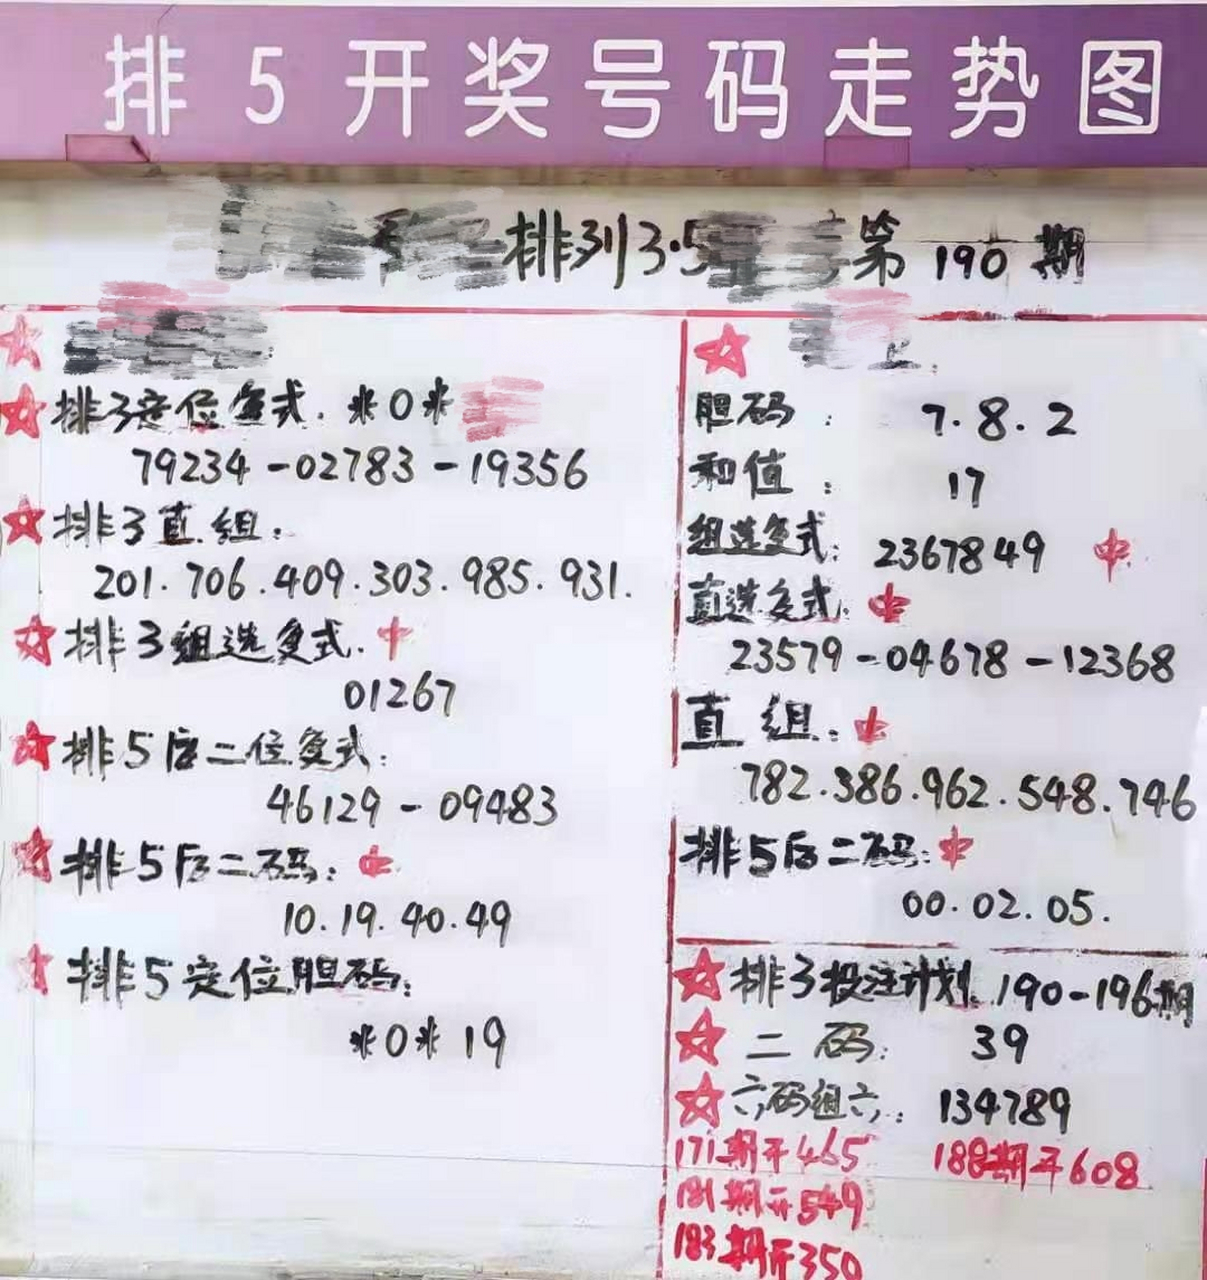 排5开奖号码走势图
排列3.5 第190期
排3定位复式. *0*
79234-02783-19356
排3直组:
201.706.409.303.985.931.
排3组选复式. 中
01267
排5后二位复式:
46129-09483
排5后二码: 中
10.19.40.49
排5定位胆码:
*0*19
胆码: 7.8.2
和值: 17
组选复式: 2367849 中
直选复式. 中
23579-04678-12368
直组. 中
782.386.962.548.746
排5后二码: 中
00.02.05.
排3投注计划. 190-196期
二码: 39
六码组六: 134789
171期开465 188期开608
181期开549
183期开350